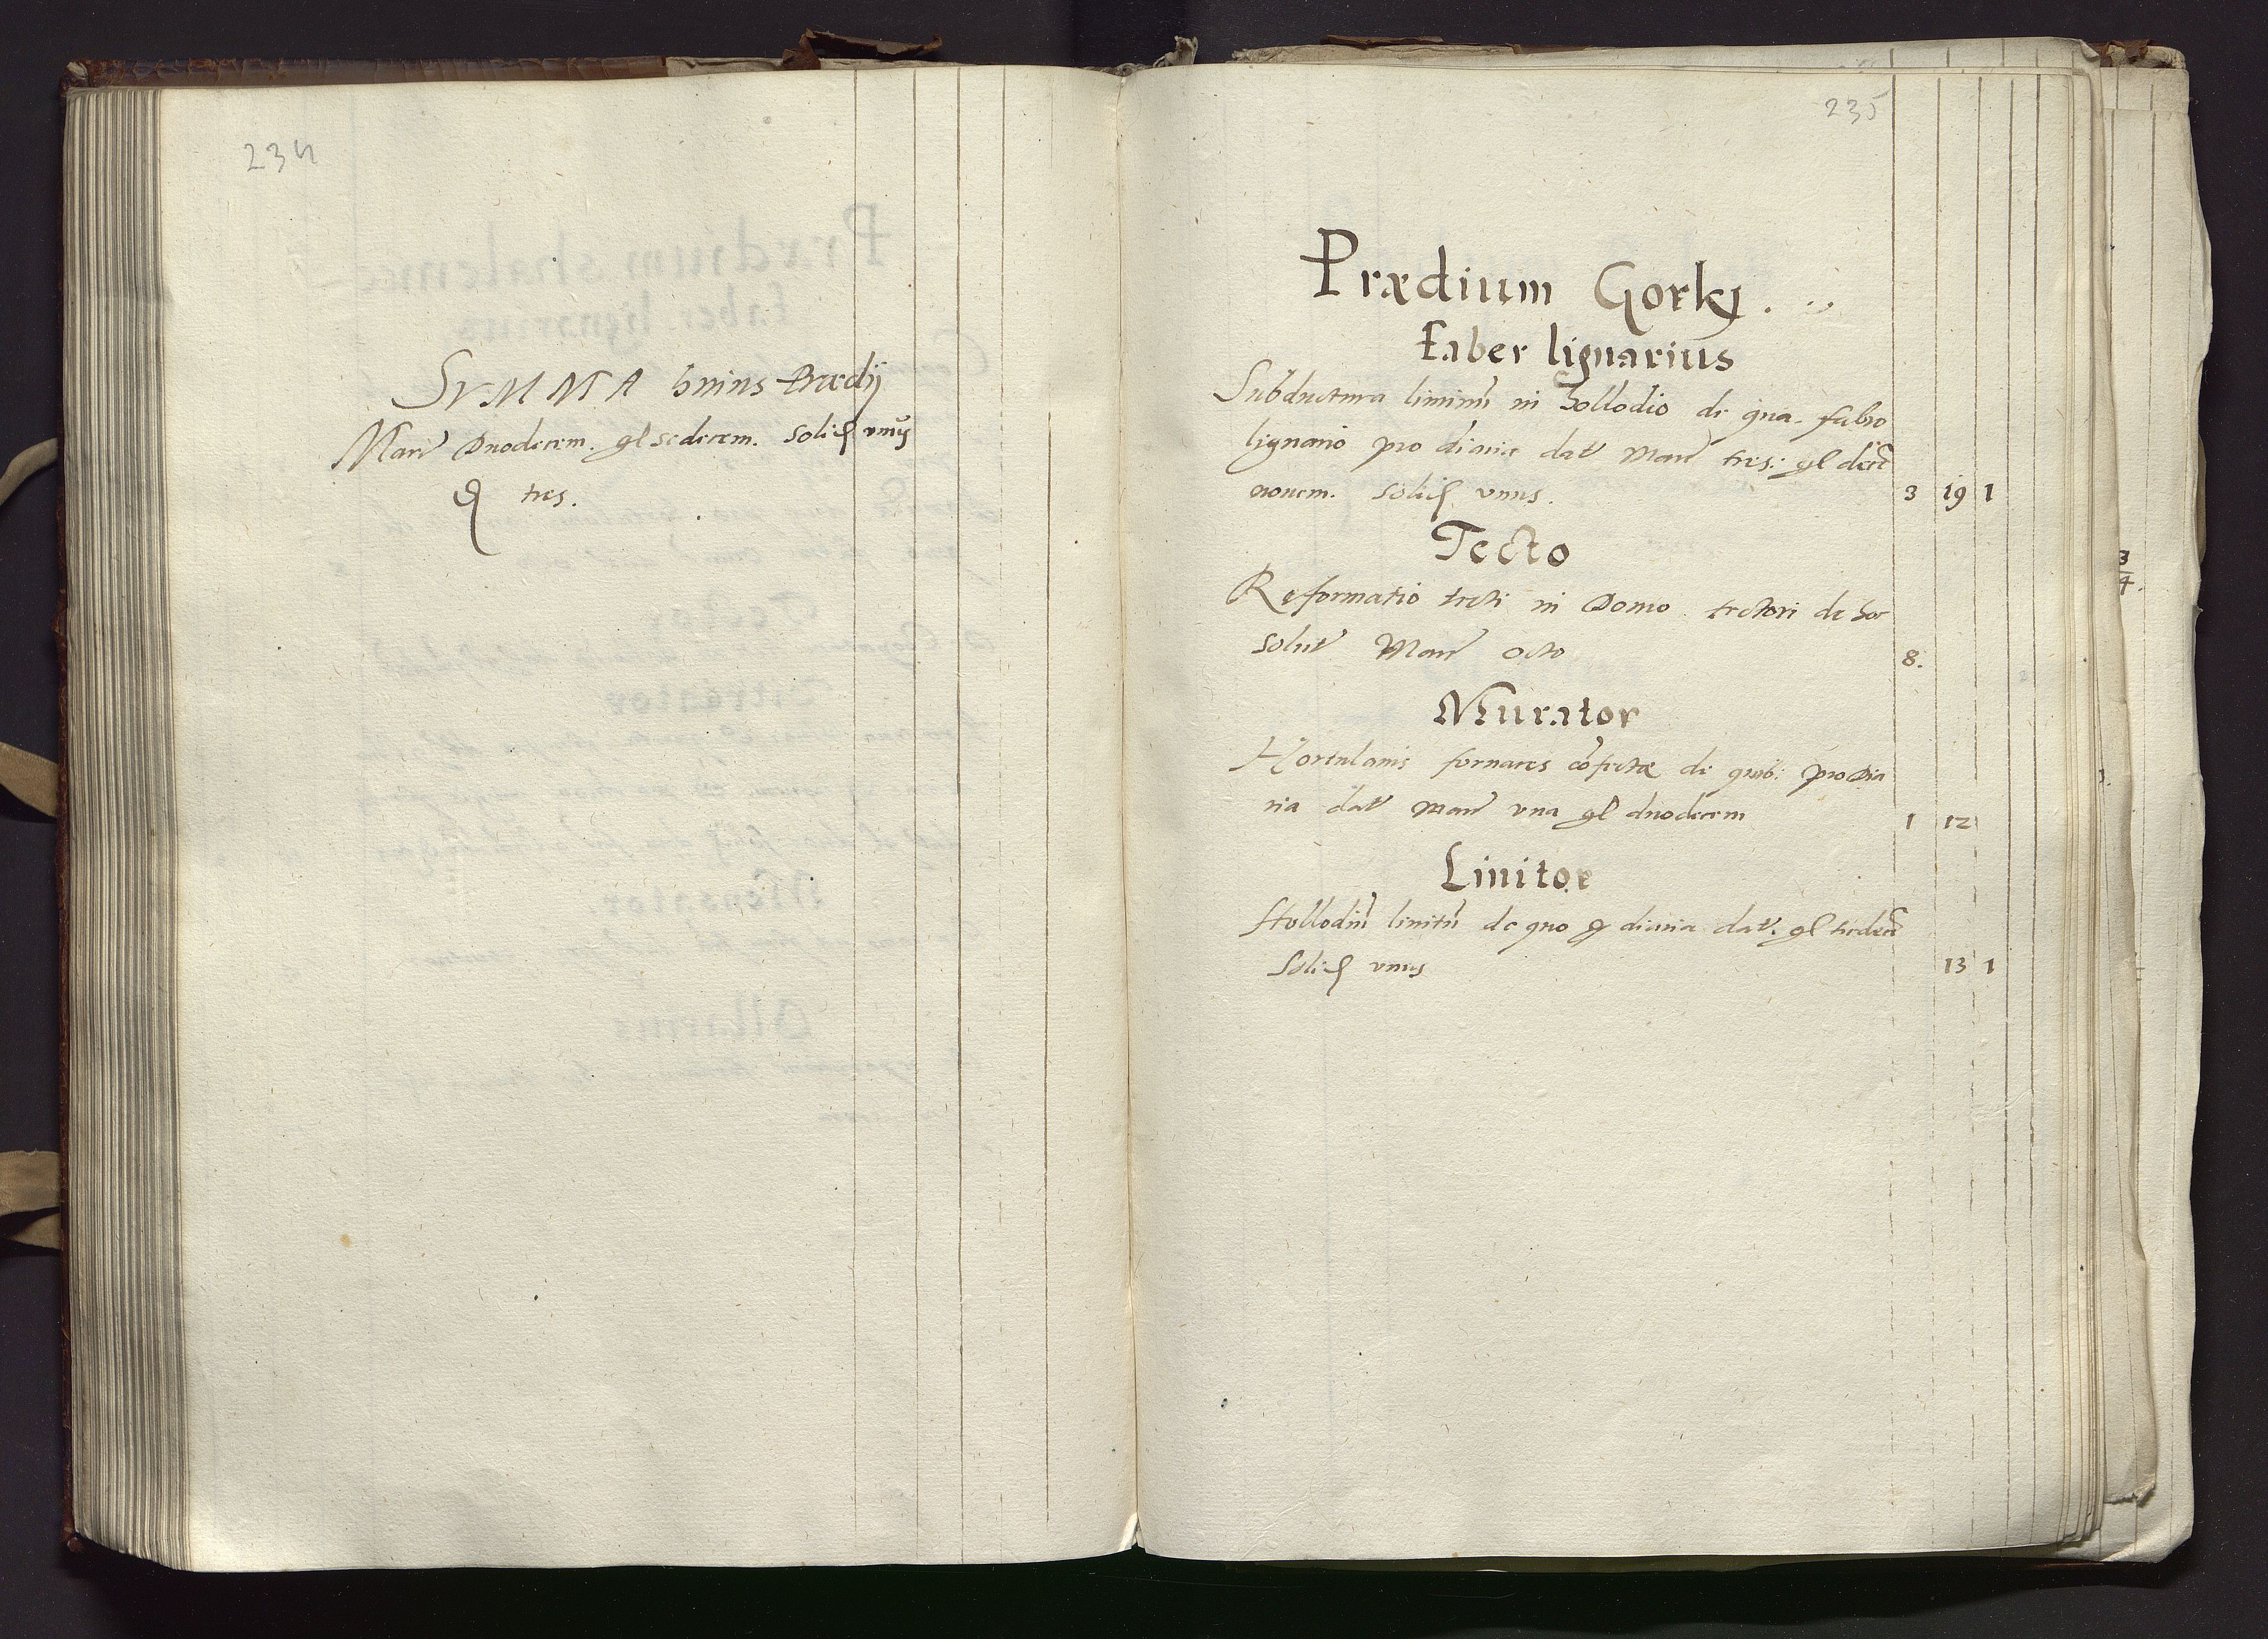 234
SVMMA huius Prædij
Marc Duodecem. gl sedecem. solid vnus
d tres.
235
Prædium Gorky.
Faber lignarius
Subductura liminū in hollodio de qua. fabro
lignario pro diaria dat Marc tres: gl decē
nouem. solid vnus.
3 19 1
Tecto
Reformatio tecti in Domo tectori de hoc
solut Marc octo
8.
Murator
Hortulanis fornaces cōfectæ de quib: pro dia
ria dat Marc vna gl duodecem
1 12
Linitor
Hollodiū linitū de quo p diaria dat. gl tredecē
Solid vnus
13 1
3
4.